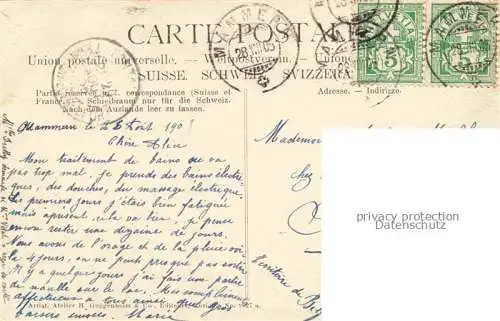 CARTE POSTALE
Union postale universelle. – Weltpostverein. – Unione
SUISSE. SCHWEIZ. SVIZZERA.
MAMMERN
28.VIII.05
HELVETIA
5
MAMMERN
Partie réservée à la correspondance (Suisse et
France). – Schreibraum nur für die Schweiz.
Nach dem Auslande leer zu lassen.
Adresse. – Indirizzo.
Mammern le 28 Août 190
Chère Alice
Mon traitement de bains ne va
pas trop mal, je prends des bains électri-
ques, des douches, du massage électrique.
Les premiers jours j'étais bien fatiguée
mais à présent, cela va bien, je pense
encore rester une dizaine de jours.
Nous avons de l'orage et de la pluie voi-
là 4 jours, on ne peut presque pas sortir
Il y a quelques jours j'ai fait une partie
de nacelle sur le lac. Mes compliments
affectueux à tous ainsi que gros
baisers envers Marie
Mademo
chez
Territoire de Be
privacy protection
Datenschutz
Artist. Atelier H. Guggenheim & Co., Editeurs